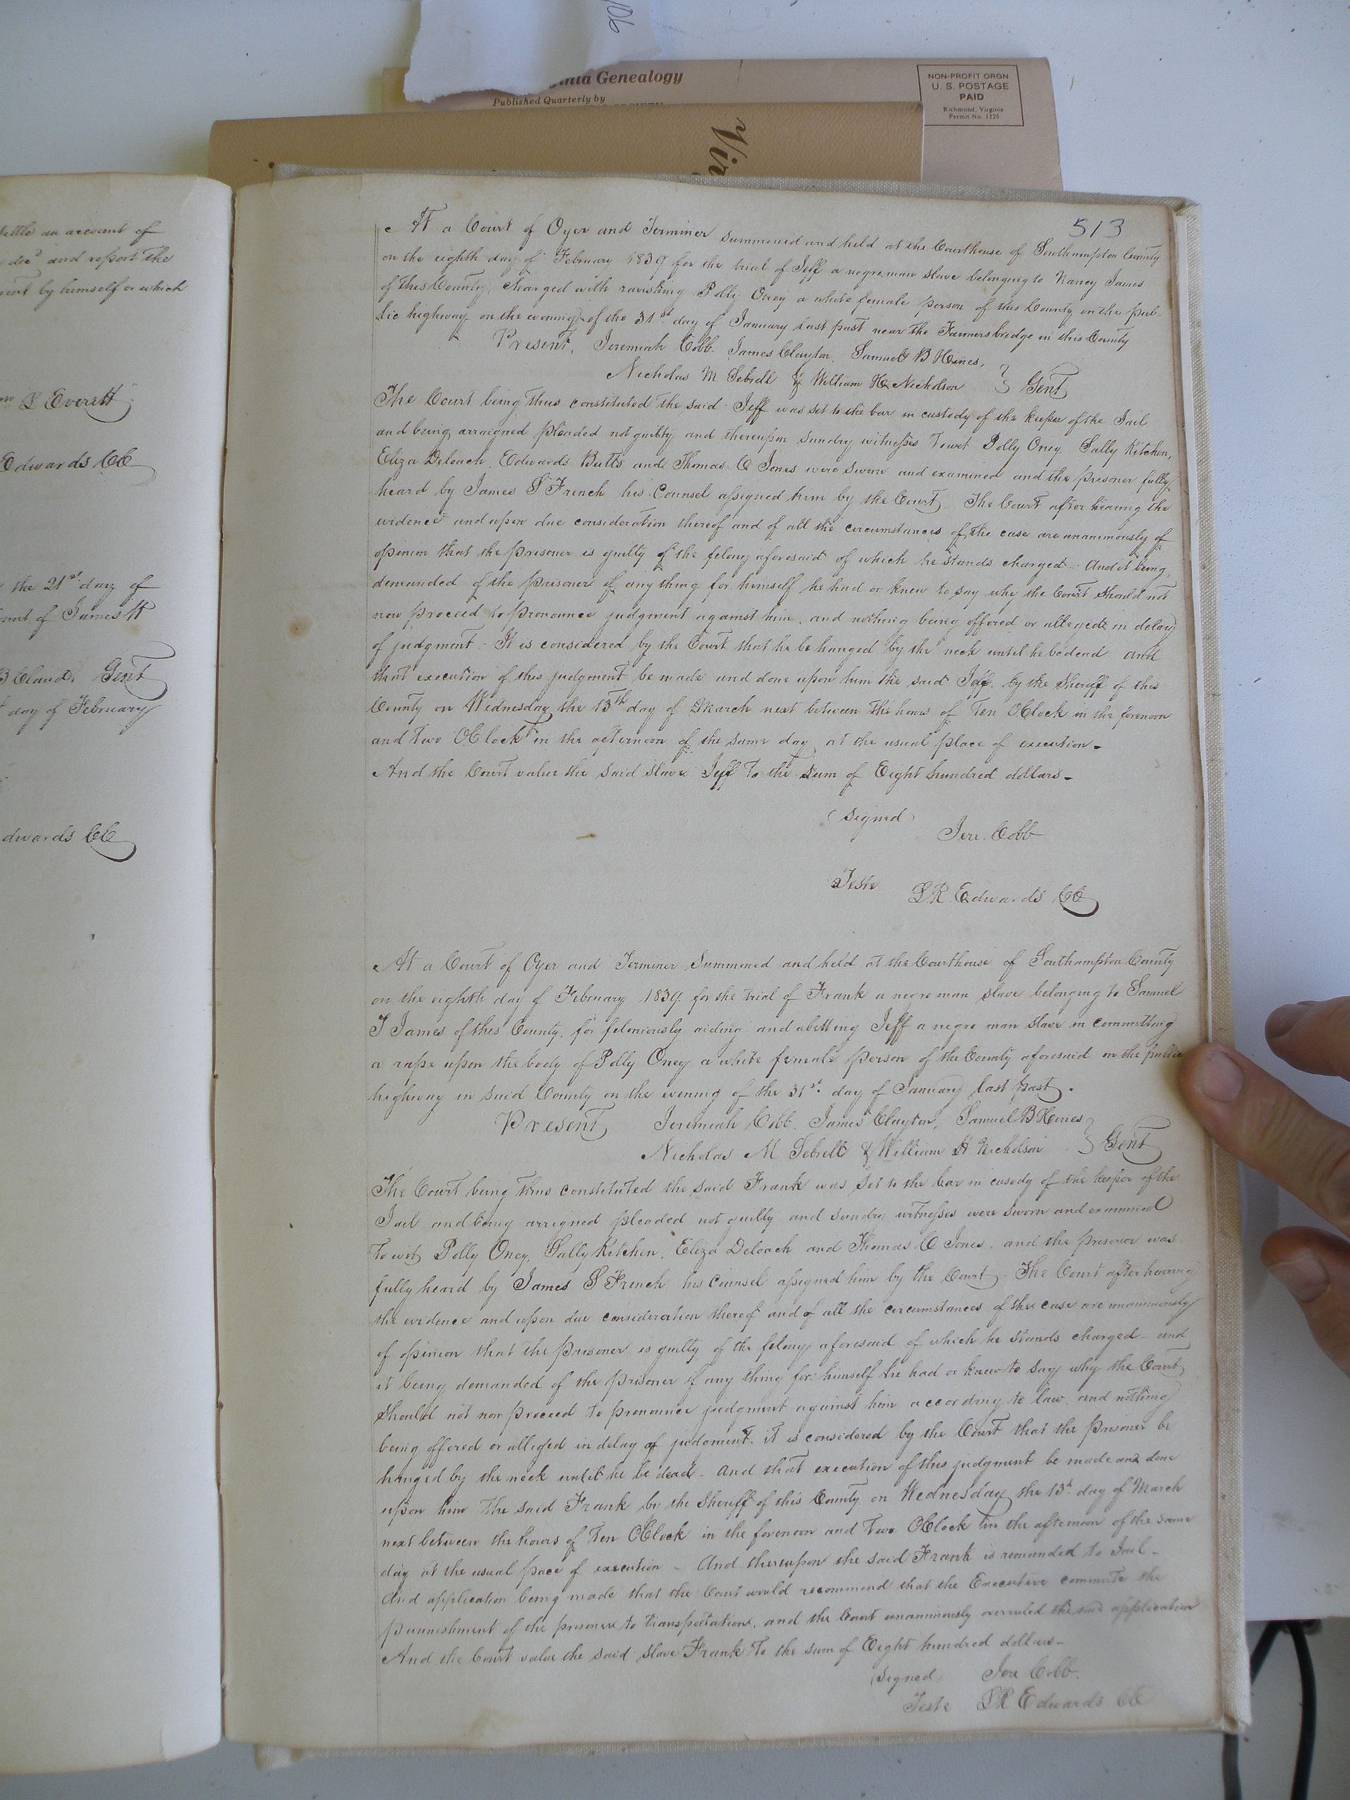 106
Virginia Genealogy
Published Quarterly by
NON-PROFIT ORGN
U. S. POSTAGE
PAID
Richmond, Virginia
Permit No. 1225
Vir
settle an account of
and report the
Court by himself or which
S Everett
Edwards CC
the 21st day of
of James W
Gent
day of February
Edwards CC
513
At a Court of Oyer and Terminer Summoned and held at the Courthouse of Southampton County
on the eighth day of February 1839 for the trial of Jeff a negro man slave belonging to Nancy James
of this County, charged with ravishing Polly Oney a white female person of this County on the pub-
lic highway on the evening of the 31st day of January last past near the Farmers bridge in this County
Present, Jeremiah Cobb, James Clayton, Samuel B Hines,
Nicholas M Sebrell & William H Nicholson } Gent
The Court being thus constituted the said Jeff was set to the bar in custody of the keeper of the Jail
and being arraigned pleaded not guilty and thereupon sundry witnesses Towit Polly Oney, Sally Kitchen,
Eliza Deloach, Edwards Butts and Thomas C Jones were sworn and examined and the prisoner fully
heard by James S French his Counsel assigned him by the Court, The Court after hearing the
evidence and upon due consideration thereof and of all the circumstances of the case are unanimously of
opinion that the prisoner is guilty of the felony aforesaid of which he stands charged - And it being
demanded of the prisoner if any thing for himself he had or knew to say why the Court should not
now proceed to pronounce judgment against him, and nothing being offered or alleged in delay
of judgment - It is considered by the Court that he be hanged by the neck until he be dead and
that execution of this judgment be made and done upon him the said Jeff by the Sheriff of this
County on Wednesday the 13th day of March next between the hours of Ten OClock in the forenoon
and Two OClock in the afternoon of the same day, at the usual place of execution -
And the Court value the said slave Jeff To the Sum of Eight hundred dollars -
(Signed)
Jere. Cobb
Teste
L R Edwards CC
At a Court of Oyer and Terminer Summoned and held at the Courthouse of Southampton County
on the eighth day of February 1839 for the trial of Frank a negro man slave belonging to Samuel
T James of this County, for feloniously aiding and abetting Jeff a negro man slave in committing
a rape upon the body of Polly Oney a white female person of the County aforesaid on the public
highway in said County on the evening of the 31st day of January last past.
Present Jeremiah Cobb, James Clayton, Samuel B Hines
Nicholas M Sebrell & William H Nicholson } Gent
The Court being thus constituted the said Frank was set to the bar in custody of the keeper of the
Jail and being arrigned pleaded not guilty and sundry witnesses were sworn and examined
To wit, Polly Oney, Sally Kitchen, Eliza Deloach and Thomas C Jones, and the prisoner was
fully heard by James S French his Counsel assigned him by the Court - The Court after hearing
the evidence and upon due consideration thereof and of all the circumstances of the case are unanimously
of opinion that the prisoner is guilty of the felony aforesaid of which he stands charged - and
it being demanded of the prisoner if any thing for himself he had or knew to say why the Court
should not now proceed to pronounce judgment against him according to law, and nothing
being offered or alleged in delay of judgment, it is considered by the Court that the prisoner be
hanged by the neck until he be dead - and that execution of this judgment be made and done
upon him the said Frank by the Sheriff of this County on Wednesday the 13th day of March
next between the hours of Ten OClock in the forenoon and Two OClock in the afternoon of the same
day at the usual place of execution - And thereupon the said Frank is remanded to Jail -
And application being made that the Court would recommend that the Executive commute the
punishment of the prisoner to transportation, and the Court unanimously overruled the said application
And the Court value the said slave Frank To the sum of Eight hundred dollars -
(Signed) Jere Cobb.
Teste L R Edwards CC